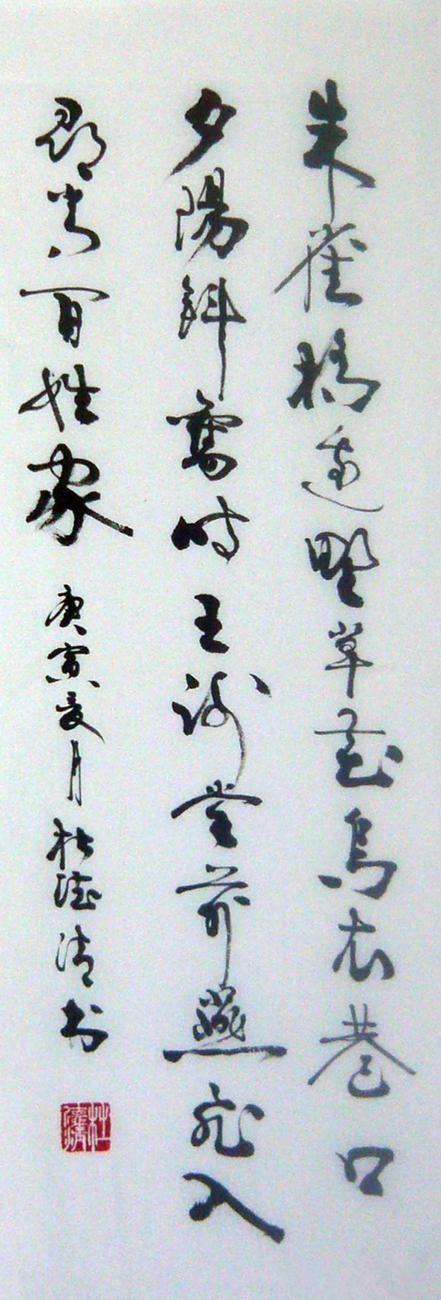 朱雀橋邊野草花烏衣巷口
夕陽斜舊時王謝堂前燕飛入
尋常百姓家 庚寅夏月杜德清书